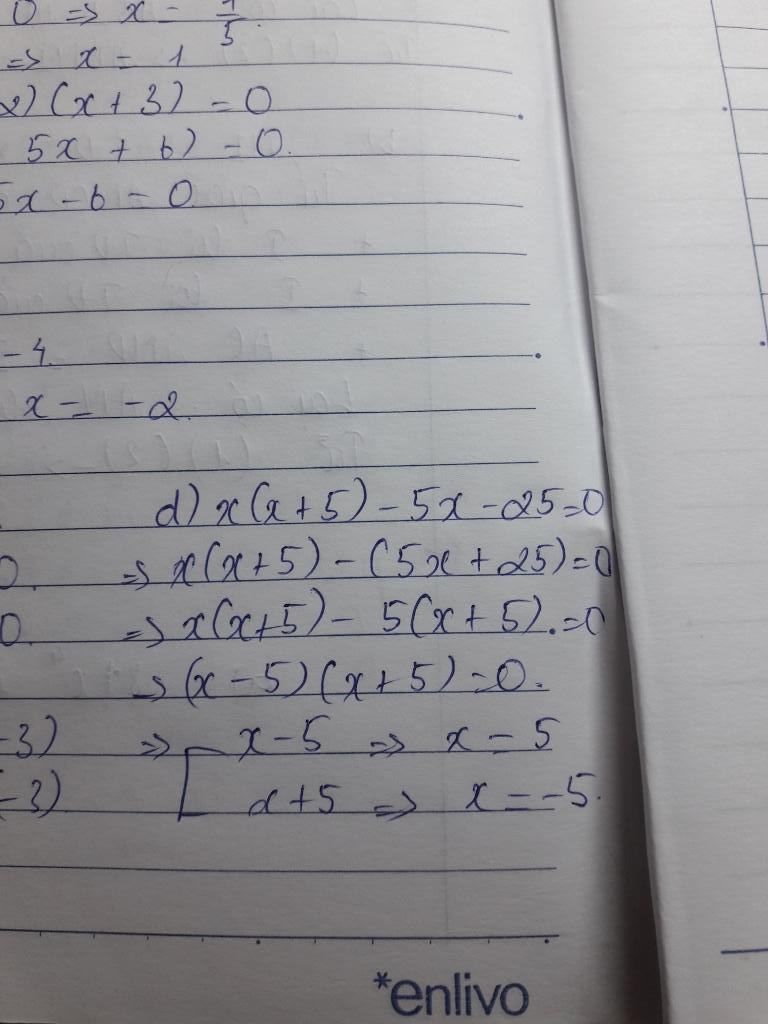 0 => x = 1/5
=> x = 1
2)(x + 3) = 0
5x + 6) = 0.
5x - 6 = 0
- 4.
x = -2.
d) x(x+5) - 5x - 25=0
0. => x(x+5) - (5x + 25)=0
0. => x(x+5) - 5(x+5).=0
=> (x-5)(x+5)=0.
-3) => [ x-5 => x = 5
-3) x+5 => x = -5.
*enlivo